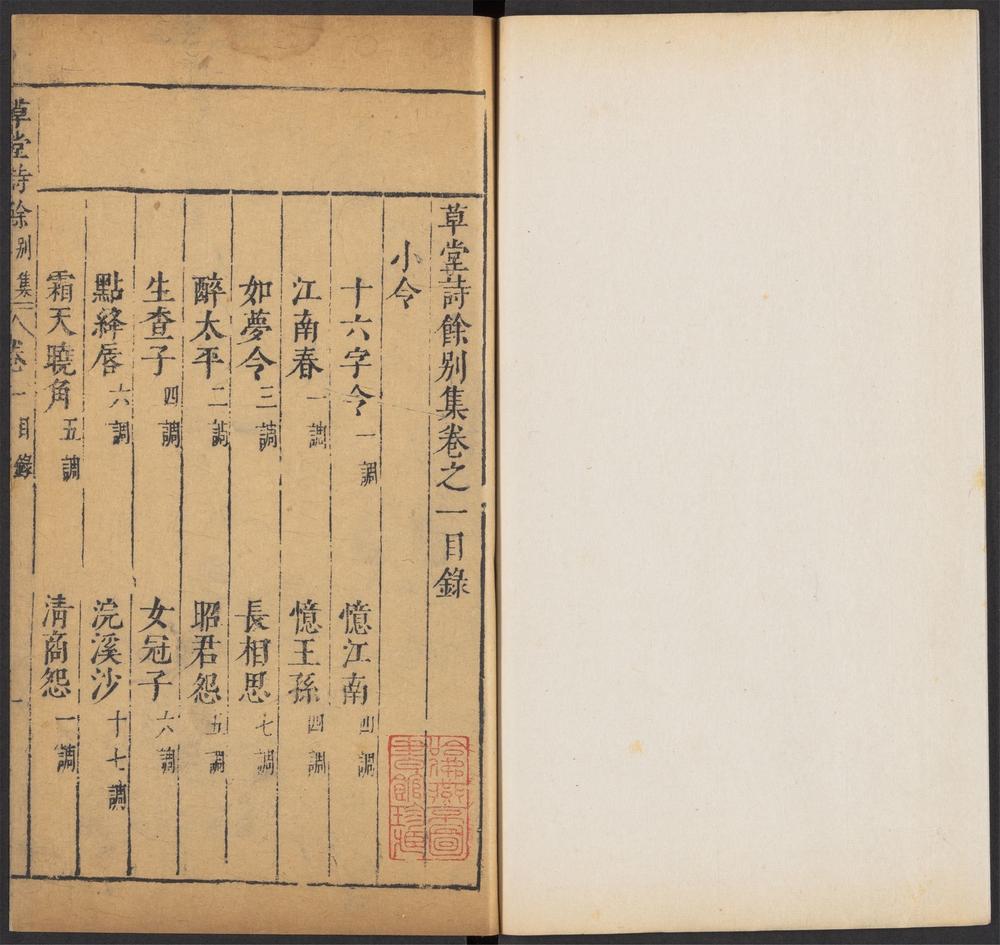 草堂詩餘别集卷之一目錄
小令
十六字令一調　憶江南四調
江南春一調　憶王孫四調
如夢令三調　長相思七調
醉太平二調　昭君怨五調
生查子四調　女冠子六調
點絳唇六調　浣溪沙十七調
霜天曉角五調　清商怨一調
草堂詩餘别集卷一目錄　一
哈佛燕京圖書館珍藏